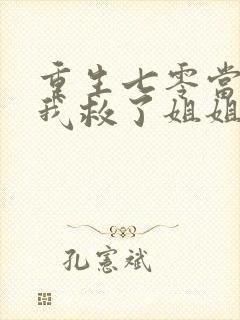 重生七零当
我救了姐姐
孔宪斌